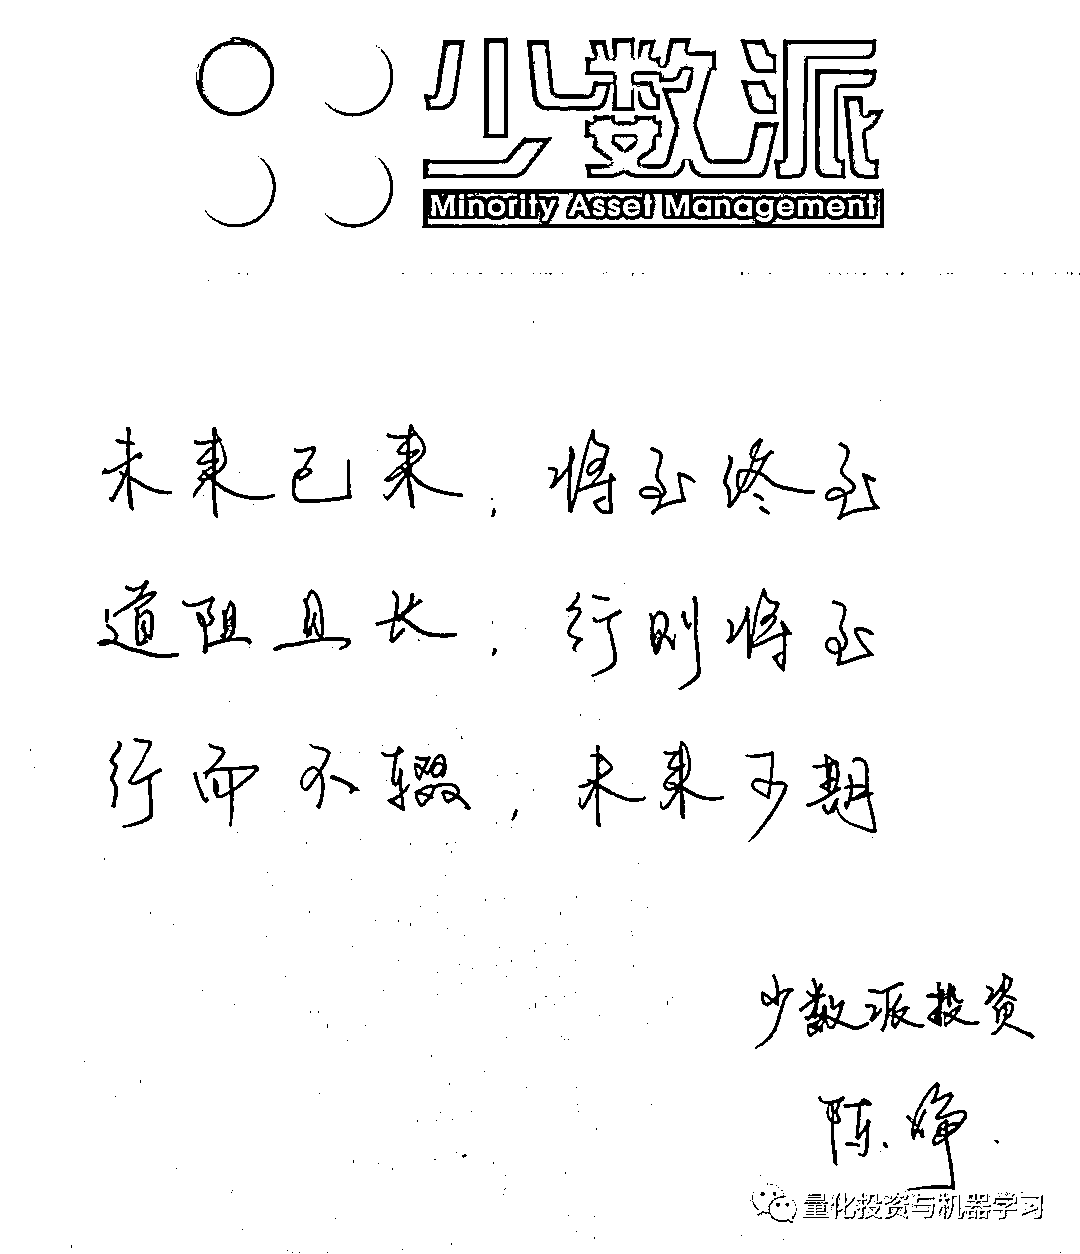 少数派
Minority Asset Management
未来已来，将至终至
道阻且长，行则将至
行而不辍，未来可期
少数派投资
陈
量化投资与机器学习